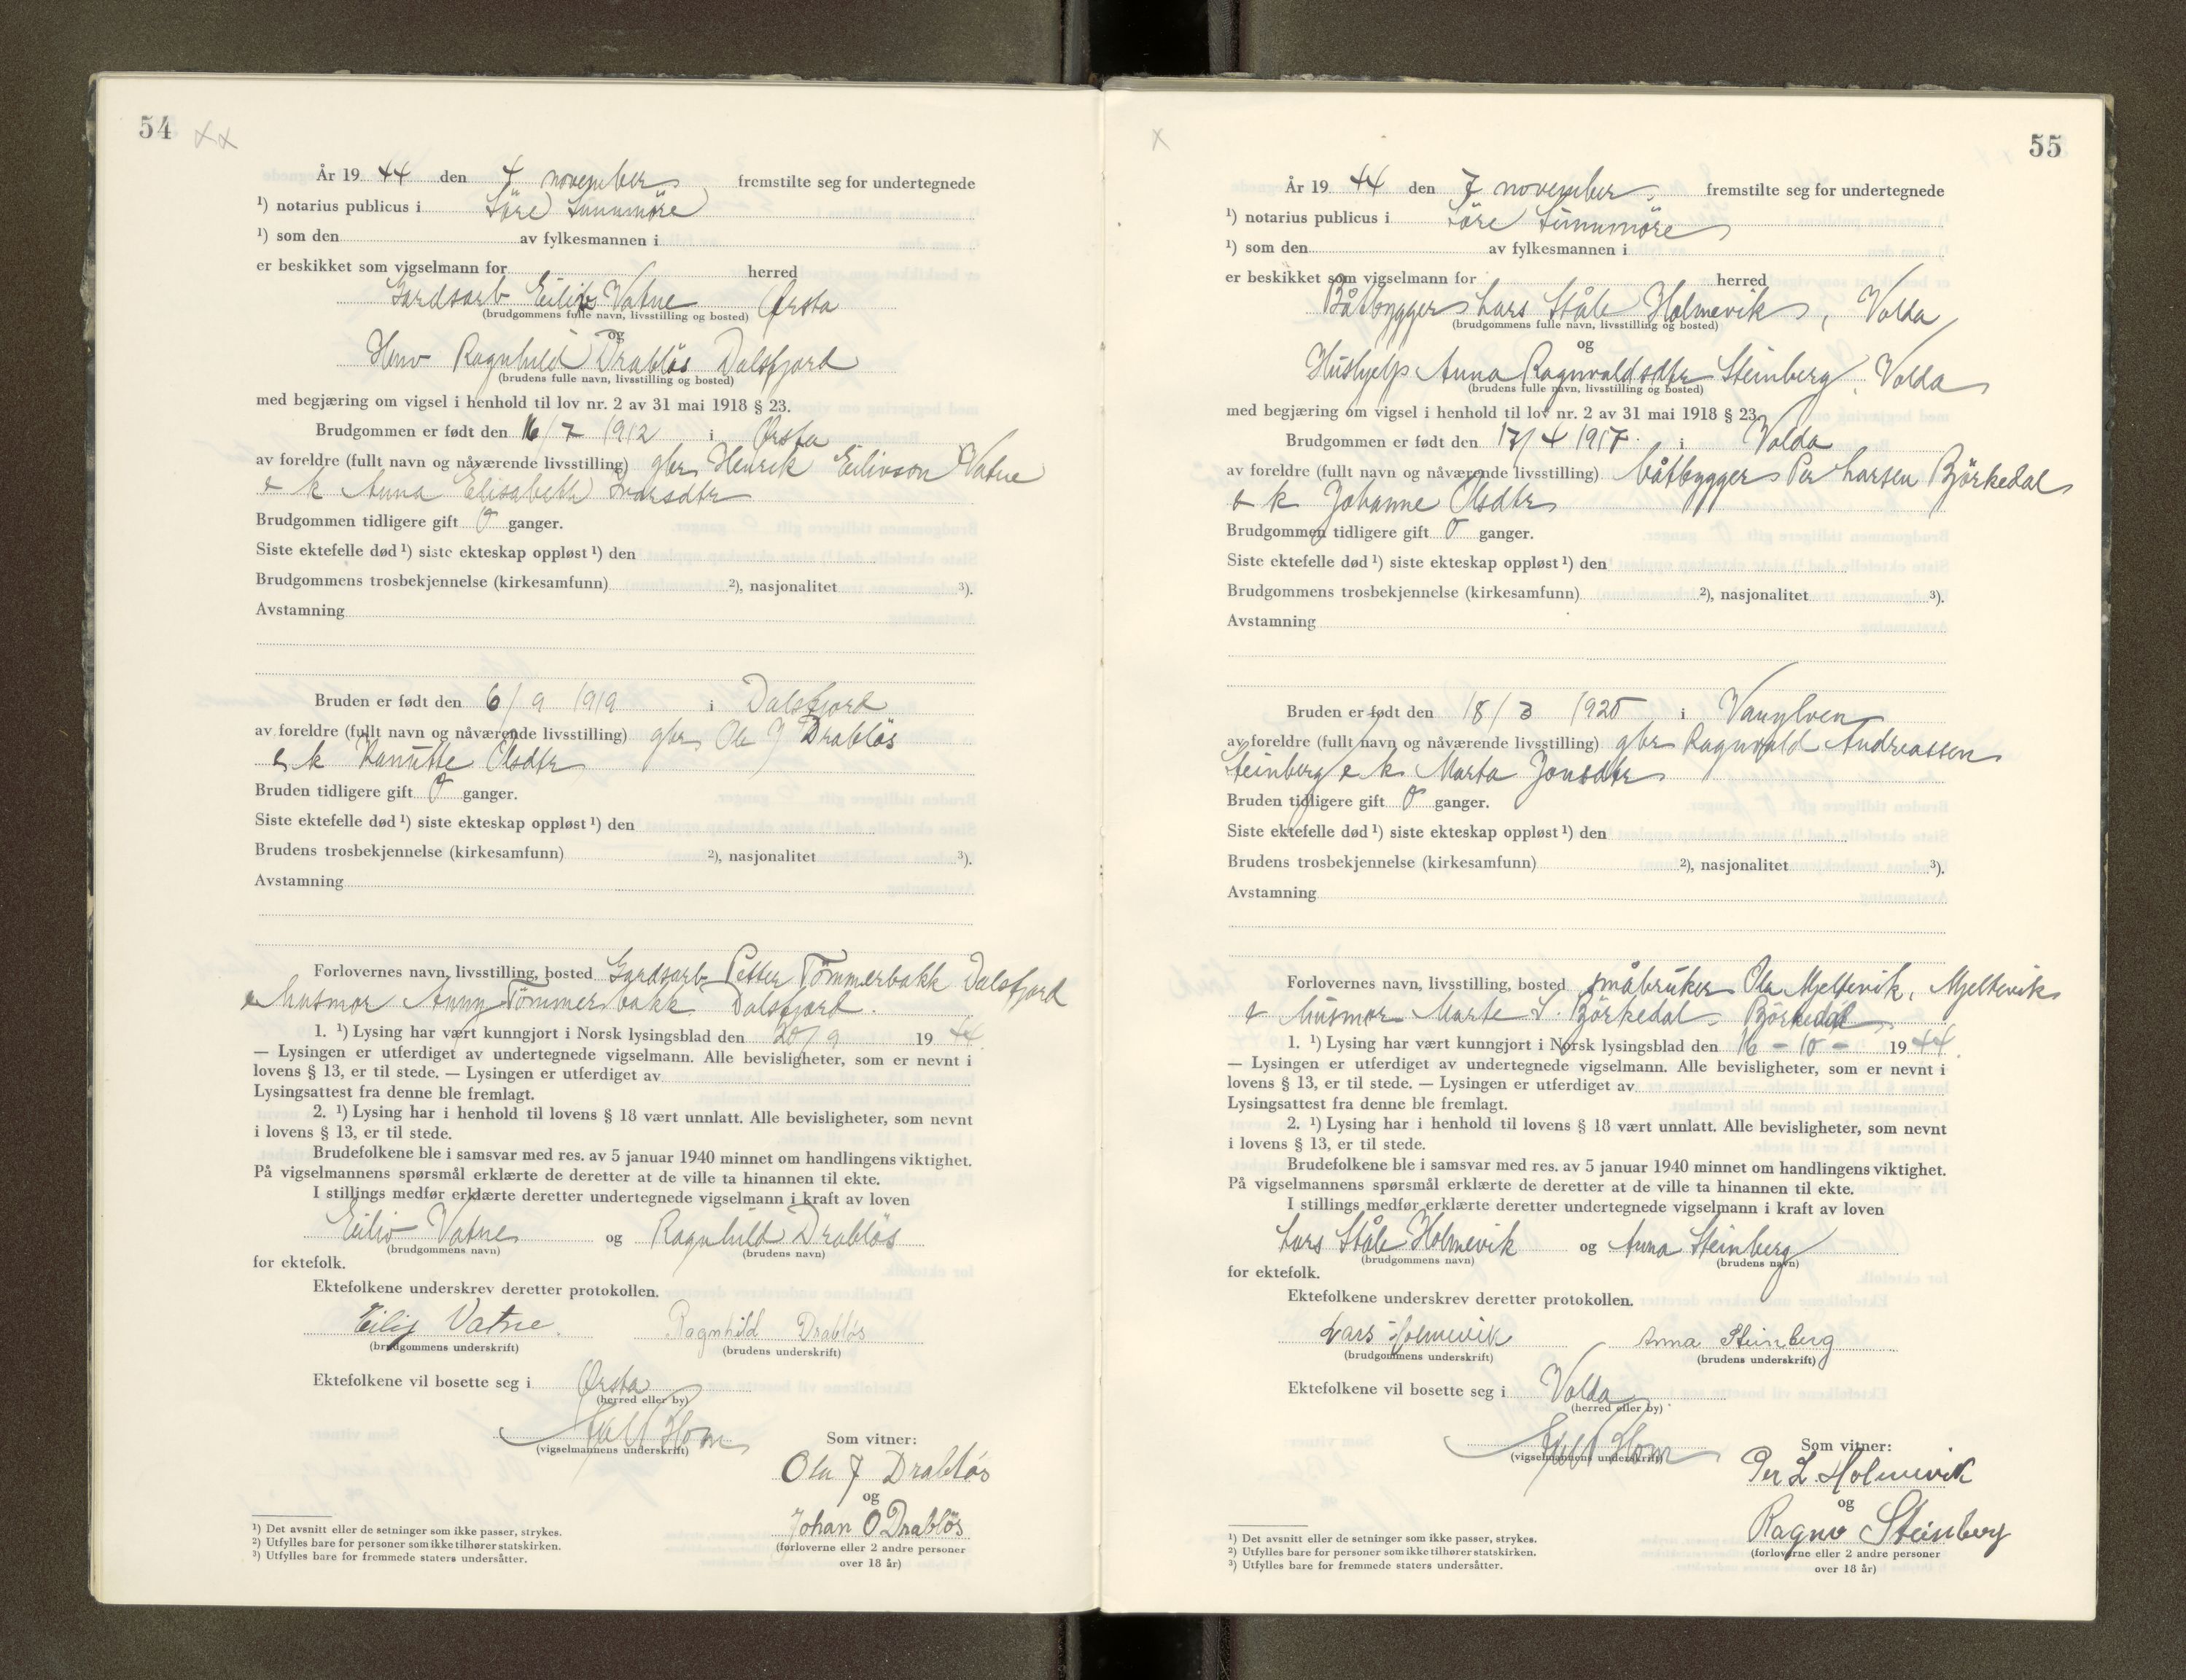 54
År 19 44 den 4 november fremstilte seg for undertegnede
¹) notarius publicus i Söre Sunnmöre
¹) som den av fylkesmannen i
er beskikket som vigselmann for herred
Gardsarb Eiliv Vatne Ørsta
(brudgommens fulle navn, livsstilling og bosted)
og
Ragnhild Drablös Dalsfjord
(brudens fulle navn, livsstilling og bosted)
med begjæring om vigsel i henhold til lov nr. 2 av 31 mai 1918 § 23.
Brudgommen er født den 16/7 1912 i Ørsta
av foreldre (fullt navn og nåværende livsstilling) gbr Henrik Eilivson Vatne
e k Anna Elisabeth Ivarsdtr
Brudgommen tidligere gift 0 ganger.
Siste ektefelle død ¹) siste ekteskap oppløst ¹) den
Brudgommens trosbekjennelse (kirkesamfunn) ²), nasjonalitet ³).
Avstamning
Bruden er født den 6/9 1919 i Dalsfjord
av foreldre (fullt navn og nåværende livsstilling) gbr Ola J Drablös
e k Hanutte Olsdtr
Bruden tidligere gift 0 ganger.
Siste ektefelle død ¹) siste ekteskap oppløst ¹) den
Brudens trosbekjennelse (kirkesamfunn) ²), nasjonalitet ³).
Avstamning
Forlovernes navn, livsstilling, bosted Gardsarb Petter Tömmerbakk Dalsfjord
e husmor Anny Tömmerbakk Dalsfjord.
1. ¹) Lysing har vært kunngjort i Norsk lysingsblad den 20/9 19 44.
— Lysingen er utferdiget av undertegnede vigselmann. Alle bevisligheter, som er nevnt i
lovens § 13, er til stede. — Lysingen er utferdiget av
Lysingsattest fra denne ble fremlagt.
2. ¹) Lysing har i henhold til lovens § 18 vært unnlatt. Alle bevisligheter, som nevnt
i lovens § 13, er til stede.
Brudefolkene ble i samsvar med res. av 5 januar 1940 minnet om handlingens viktighet.
På vigselmannens spørsmål erklærte de deretter at de ville ta hinannen til ekte.
I stillings medfør erklærte deretter undertegnede vigselmann i kraft av loven
Eiliv Vatne og Ragnhild Drablös
(brudgommens navn) (brudens navn)
for ektefolk.
Ektefolkene underskrev deretter protokollen.
Eiliv Vatne. Ragnhild Drabløs
(brudgommens underskrift) (brudens underskrift)
Ektefolkene vil bosette seg i Ørsta
(herred eller by)
(vigselmannens underskrift)
Som vitner:
Ola J Drabløs
og
Johan O Drabløs
(forloverne eller 2 andre personer
over 18 år)
¹) Det avsnitt eller de setninger som ikke passer, strykes.
²) Utfylles bare for personer som ikke tilhører statskirken.
³) Utfylles bare for fremmede staters undersåtter.
55
År 19 44 den 7 november fremstilte seg for undertegnede
¹) notarius publicus i Söre Sunnmöre
¹) som den av fylkesmannen i
er beskikket som vigselmann for herred
Båtbygger Lars Ståle Holmevik, Volda
(brudgommens fulle navn, livsstilling og bosted)
og
Hushjelp Anna Ragnvaldsdtr Steinberg, Volda
(brudens fulle navn, livsstilling og bosted)
med begjæring om vigsel i henhold til lov nr. 2 av 31 mai 1918 § 23.
Brudgommen er født den 17/4 1917. i Volda
av foreldre (fullt navn og nåværende livsstilling) båtbygger Per Larsen Björkedal
e k Johanne Olsdtr
Brudgommen tidligere gift 0 ganger.
Siste ektefelle død ¹) siste ekteskap oppløst ¹) den
Brudgommens trosbekjennelse (kirkesamfunn) ²), nasjonalitet ³).
Avstamning
Bruden er født den 18/3 1920 i Vanylven
av foreldre (fullt navn og nåværende livsstilling) gbr Ragnvald Andreassen
Steinberg e k Marta Jonsdtr
Bruden tidligere gift 0 ganger.
Siste ektefelle død ¹) siste ekteskap oppløst ¹) den
Brudens trosbekjennelse (kirkesamfunn) ²), nasjonalitet ³).
Avstamning
Forlovernes navn, livsstilling, bosted småbruker Ola Mjeltevik, Mjeltevik
e husmor Marte L. Björkedal, Björkedal
1. ¹) Lysing har vært kunngjort i Norsk lysingsblad den 16 - 10 - 19 44.
— Lysingen er utferdiget av undertegnede vigselmann. Alle bevisligheter, som er nevnt i
lovens § 13, er til stede. — Lysingen er utferdiget av
Lysingsattest fra denne ble fremlagt.
2. ¹) Lysing har i henhold til lovens § 18 vært unnlatt. Alle bevisligheter, som nevnt
i lovens § 13, er til stede.
Brudefolkene ble i samsvar med res. av 5 januar 1940 minnet om handlingens viktighet.
På vigselmannens spørsmål erklærte de deretter at de ville ta hinannen til ekte.
I stillings medfør erklærte deretter undertegnede vigselmann i kraft av loven
Lars Ståle Holmevik og Anna Steinberg
(brudgommens navn) (brudens navn)
for ektefolk.
Ektefolkene underskrev deretter protokollen.
Lars Holmevik Anna Steinberg
(brudgommens underskrift) (brudens underskrift)
Ektefolkene vil bosette seg i Volda
(herred eller by)
(vigselmannens underskrift)
Som vitner:
Per L. Holmevik
og
Ragnv Steinberg
(forloverne eller 2 andre personer
over 18 år)
¹) Det avsnitt eller de setninger som ikke passer, strykes.
²) Utfylles bare for personer som ikke tilhører statskirken.
³) Utfylles bare for fremmede staters undersåtter.